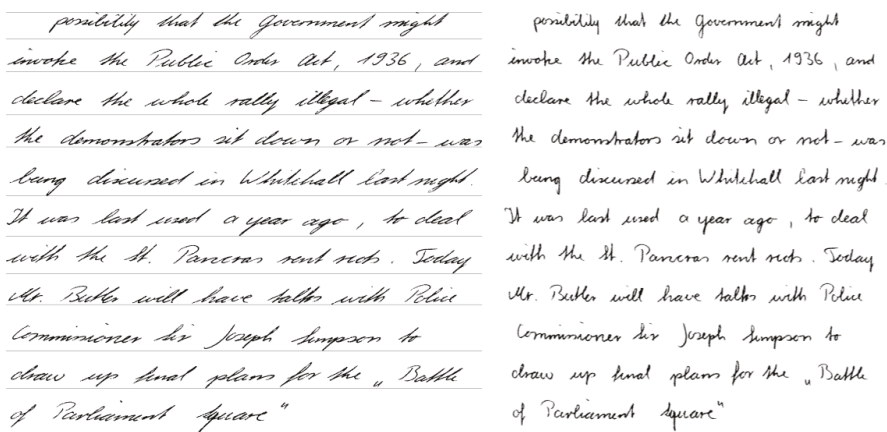 possibility that the Government might
invoke the Public Order Act, 1936, and
declare the whole rally illegal – whether
the demonstrators sit down or not – was
being discussed in Whitehall last night.
It was last used a year ago, to deal
with the St. Pancras rent riots. Today
Mr. Butler will have talks with Police
Commissioner Sir Joseph Simpson to
draw up final plans for the „Battle
of Parliament Square“
possibility that the Government might
invoke the Public Order Act, 1936, and
declare the whole rally illegal – whether
the demonstrators sit down or not – was
being discussed in Whitehall last night.
It was last used a year ago, to deal
with the St. Pancras rent riots. Today
Mr. Butler will have talks with Police
Commissioner Sir Joseph Simpson to
draw up final plans for the „Battle
of Parliament Square“